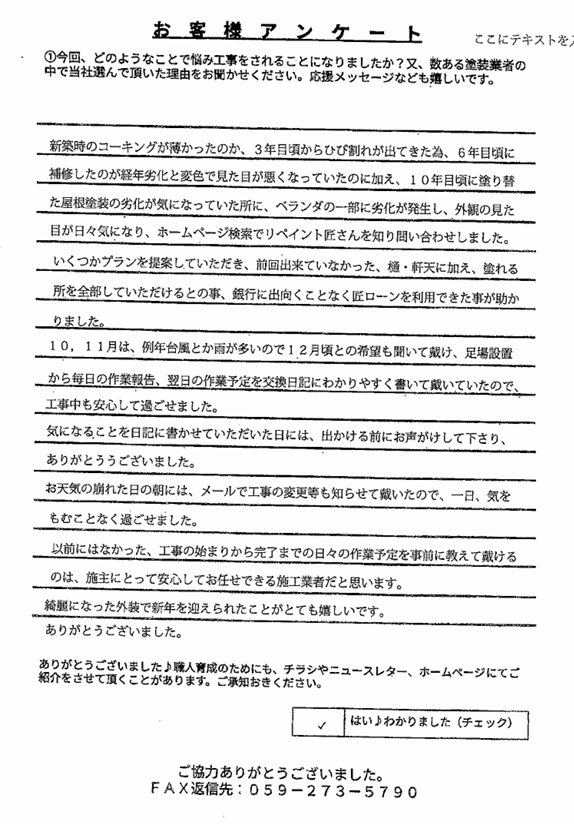 お客様アンケート
ここにテキストを入
①今回、どのようなことで悩み工事をされることになりましたか？又、数ある塗装業者の
中で当社選んで頂いた理由をお聞かせください。応援メッセージなども嬉しいです。
新築時のコーキングが薄かったのか、３年目頃からひび割れが出てきた為、６年目頃に
補修したのが経年劣化と変色で見た目が悪くなっていたのに加え、１０年目頃に塗り替
た屋根塗装の劣化が気になっていた所に、ベランダの一部に劣化が発生し、外観の見た
目が日々気になり、ホームページ検索でリペイント匠さんを知り問い合わせしました。
いくつかプランを提案していただき、前回出来ていなかった、樋・軒天に加え、塗れる
所を全部していただけるとの事、銀行に出向くことなく匠ローンを利用できた事が助か
りました。
１０，１１月は、例年台風とか雨が多いので１２月頃との希望も聞いて戴け、足場設置
から毎日の作業報告、翌日の作業予定を交換日記にわかりやすく書いて戴いていたので、
工事中も安心して過ごせました。
気になることを日記に書かせていただいた日には、出かける前にお声がけして下さり、
ありがとううございました。
お天気の崩れた日の朝には、メールで工事の変更等も知らせて戴いたので、一日、気を
もむことなく過ごせました。
以前にはなかった、工事の始まりから完了までの日々の作業予定を事前に教えて戴ける
のは、施主にとって安心してお任せできる施工業者だと思います。
綺麗になった外装で新年を迎えられたことがとても嬉しいです。
ありがとうございました。
ありがとうございました♪職人育成のためにも、チラシやニュースレター、ホームページにてご
紹介をさせて頂くことがあります。ご承知おきください。
✓ はい♪わかりました（チェック）
ご協力ありがとうございました。
ＦＡＸ返信先：０５９－２７３－５７９０